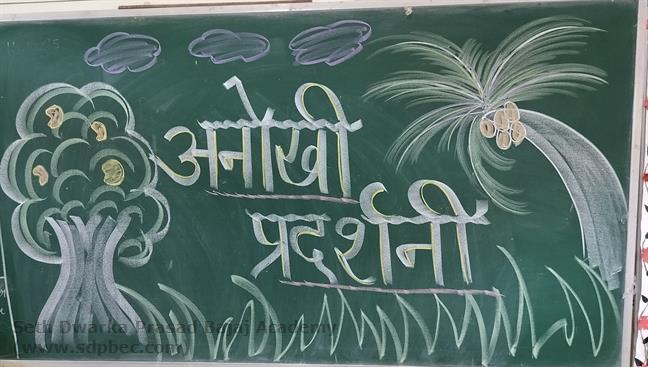 अनोखी
प्रदर्शनी
Seth Dwarka Prasad Bajaj Academy
www.sdpbec.com